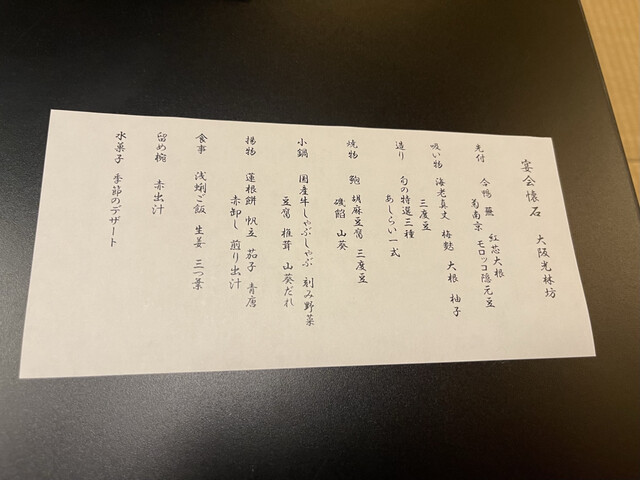 宴会懐石 大阪光林坊
先付 合鴨 蕪 紅芯大根
菊南京 モロッコ隠元豆
吸い物 海老真丈 梅麩 大根 柚子
三度豆
造り 旬の特選三種
あしらい一式
焼物 鮑 胡麻豆腐 三度豆
磯餡 山葵
小鍋 国産牛しゃぶしゃぶ 刻み野菜
豆腐 椎茸 山葵だれ
揚物 蓮根餅 帆立 茄子 青唐
赤卸し 煎り出汁
食事 浅蜊ご飯 生姜 三つ葉
留め椀 赤出汁
水菓子 季節のデザート